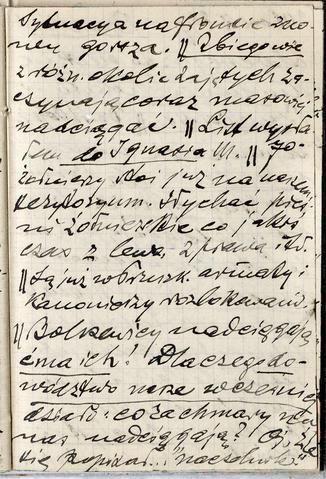 Sytuacya na froncie zno-
wu gorsza. || Zbiegowie
z różn. okolic zajętych za-
czynają coraz masowiej
nadciągać. || List wysła-
łem do Ignasia M. ||
żołnierzy stoi już na naszem
terytoryum. Słychać pieś-
ni żołnierskie co jakiś
czas z lewa, z prawa itd.
|| Są już w Brzusk. armaty i
kanonierzy rozlokowani.
|| Bolszewicy nadciągają
ćma ich! Dlaczego do-
wództwo nasze wcześniej
co za chmary na
nas nadciągają? O, źle
się popisał... "naczelnik"